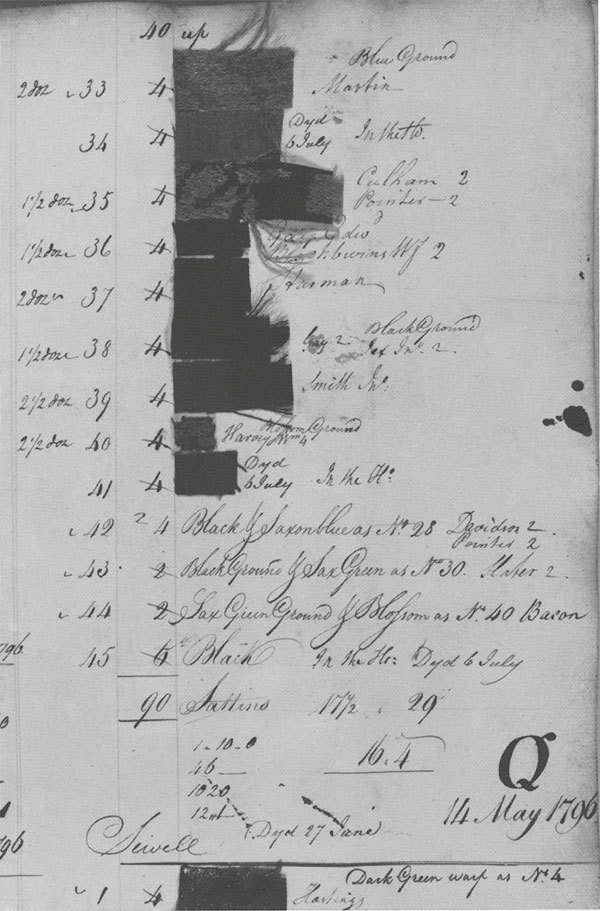 40 up
Blue Ground
2 doz 33 4 Martin
34 4 Dyd 6 July In the Ho.
1½ doz 35 4 Culham 2
Pointer - 2
1½ doz 36 4 2
2 doz 37 4 Harman
Black Ground
1½ doz 38 4 Gay 2 Jno. 2.
2½ doz 39 4 Smith Jno:
Blossom Ground
2½ doz 40 4 Harvey Wm 4
41 4 Dyd 6 July In the Ho.
42 4 Black & Saxonblue as No. 28 Davidson 2.
Pointer 2
43 2 Black Ground & Sax Green as No 30. Slater 2.
44 2 Sax Green Ground & Blossom as No. 40 Bacon
1796
45 6 Black In the Ho: Dyd 6 July
90 Sattins 17½ 29
1-10-0
16.4
46
Q
10 20
14 May 1796
12
Sewell Dyd 27 June
96
Dark Green warp as No. 4
1 4 Hastings